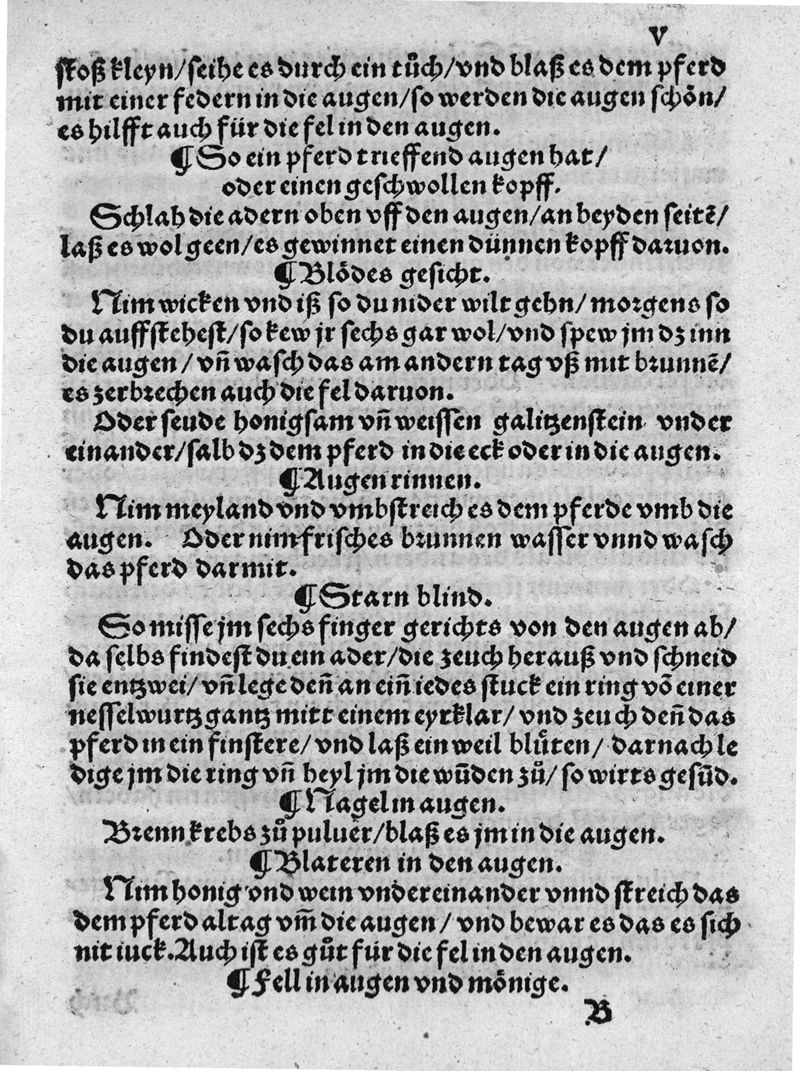 V
stoß kleyn/seihe es durch ein tůch/vnd blaß es dem pferd
mit einer federn in die augen/so werden die augen schön/
es hilfft auch für die fel in den augen.
¶ So ein pferd trieffend augen hat/
oder einen geschwollen kopff.
Schlah die adern oben vff den augen/an beyden seitē/
laß es wol geen/es gewinnet einen dünnen kopff daruon.
¶ Blödes gesicht.
Nim wicken vnd iß so du nider wilt gehn/morgens so
du auffstehest/so kew jr sechs gar wol/vnd spew jm dz inn
die augen/vn̄ wasch das am andern tag vß mit brunnē/
es zerbrechen auch die fel daruon.
Oder seude honigsam vn̄ weissen galitzenstein vnder
einander/salb dz dem pferd in die eck oder in die augen.
¶ Augen rinnen.
Nim meyland vnd vmbstreich es dem pferde vmb die
augen. Oder nim frisches brunnen wasser vnnd wasch
das pferd darmit.
¶ Starn blind.
So misse jm sechs finger gerichts von den augen ab/
da selbs findest du ein ader/die zeuch herauß vnd schneid
sie entzwei/vn̄ lege den̄ an ein̄ iedes stuck ein ring vō einer
nesselwurtz gantz mitt einem eyrklar/vnd zeuch den̄ das
pferd in ein finstere/vnd laß ein weil blůten/darnach le
dige jm die ring vn̄ heyl jm die wūden zů/so wirts gesūd.
¶ Nagel in augen.
Brenn krebs zů puluer/blaß es jm in die augen.
¶ Blateren in den augen.
Nim honig vnd wein vndereinander vnnd streich das
dem pferd altag vm̄ die augen/vnd bewar es das es sich
nit iuck. Auch ist es gůt für die fel in den augen.
¶ Fell in augen vnd mönige.
B